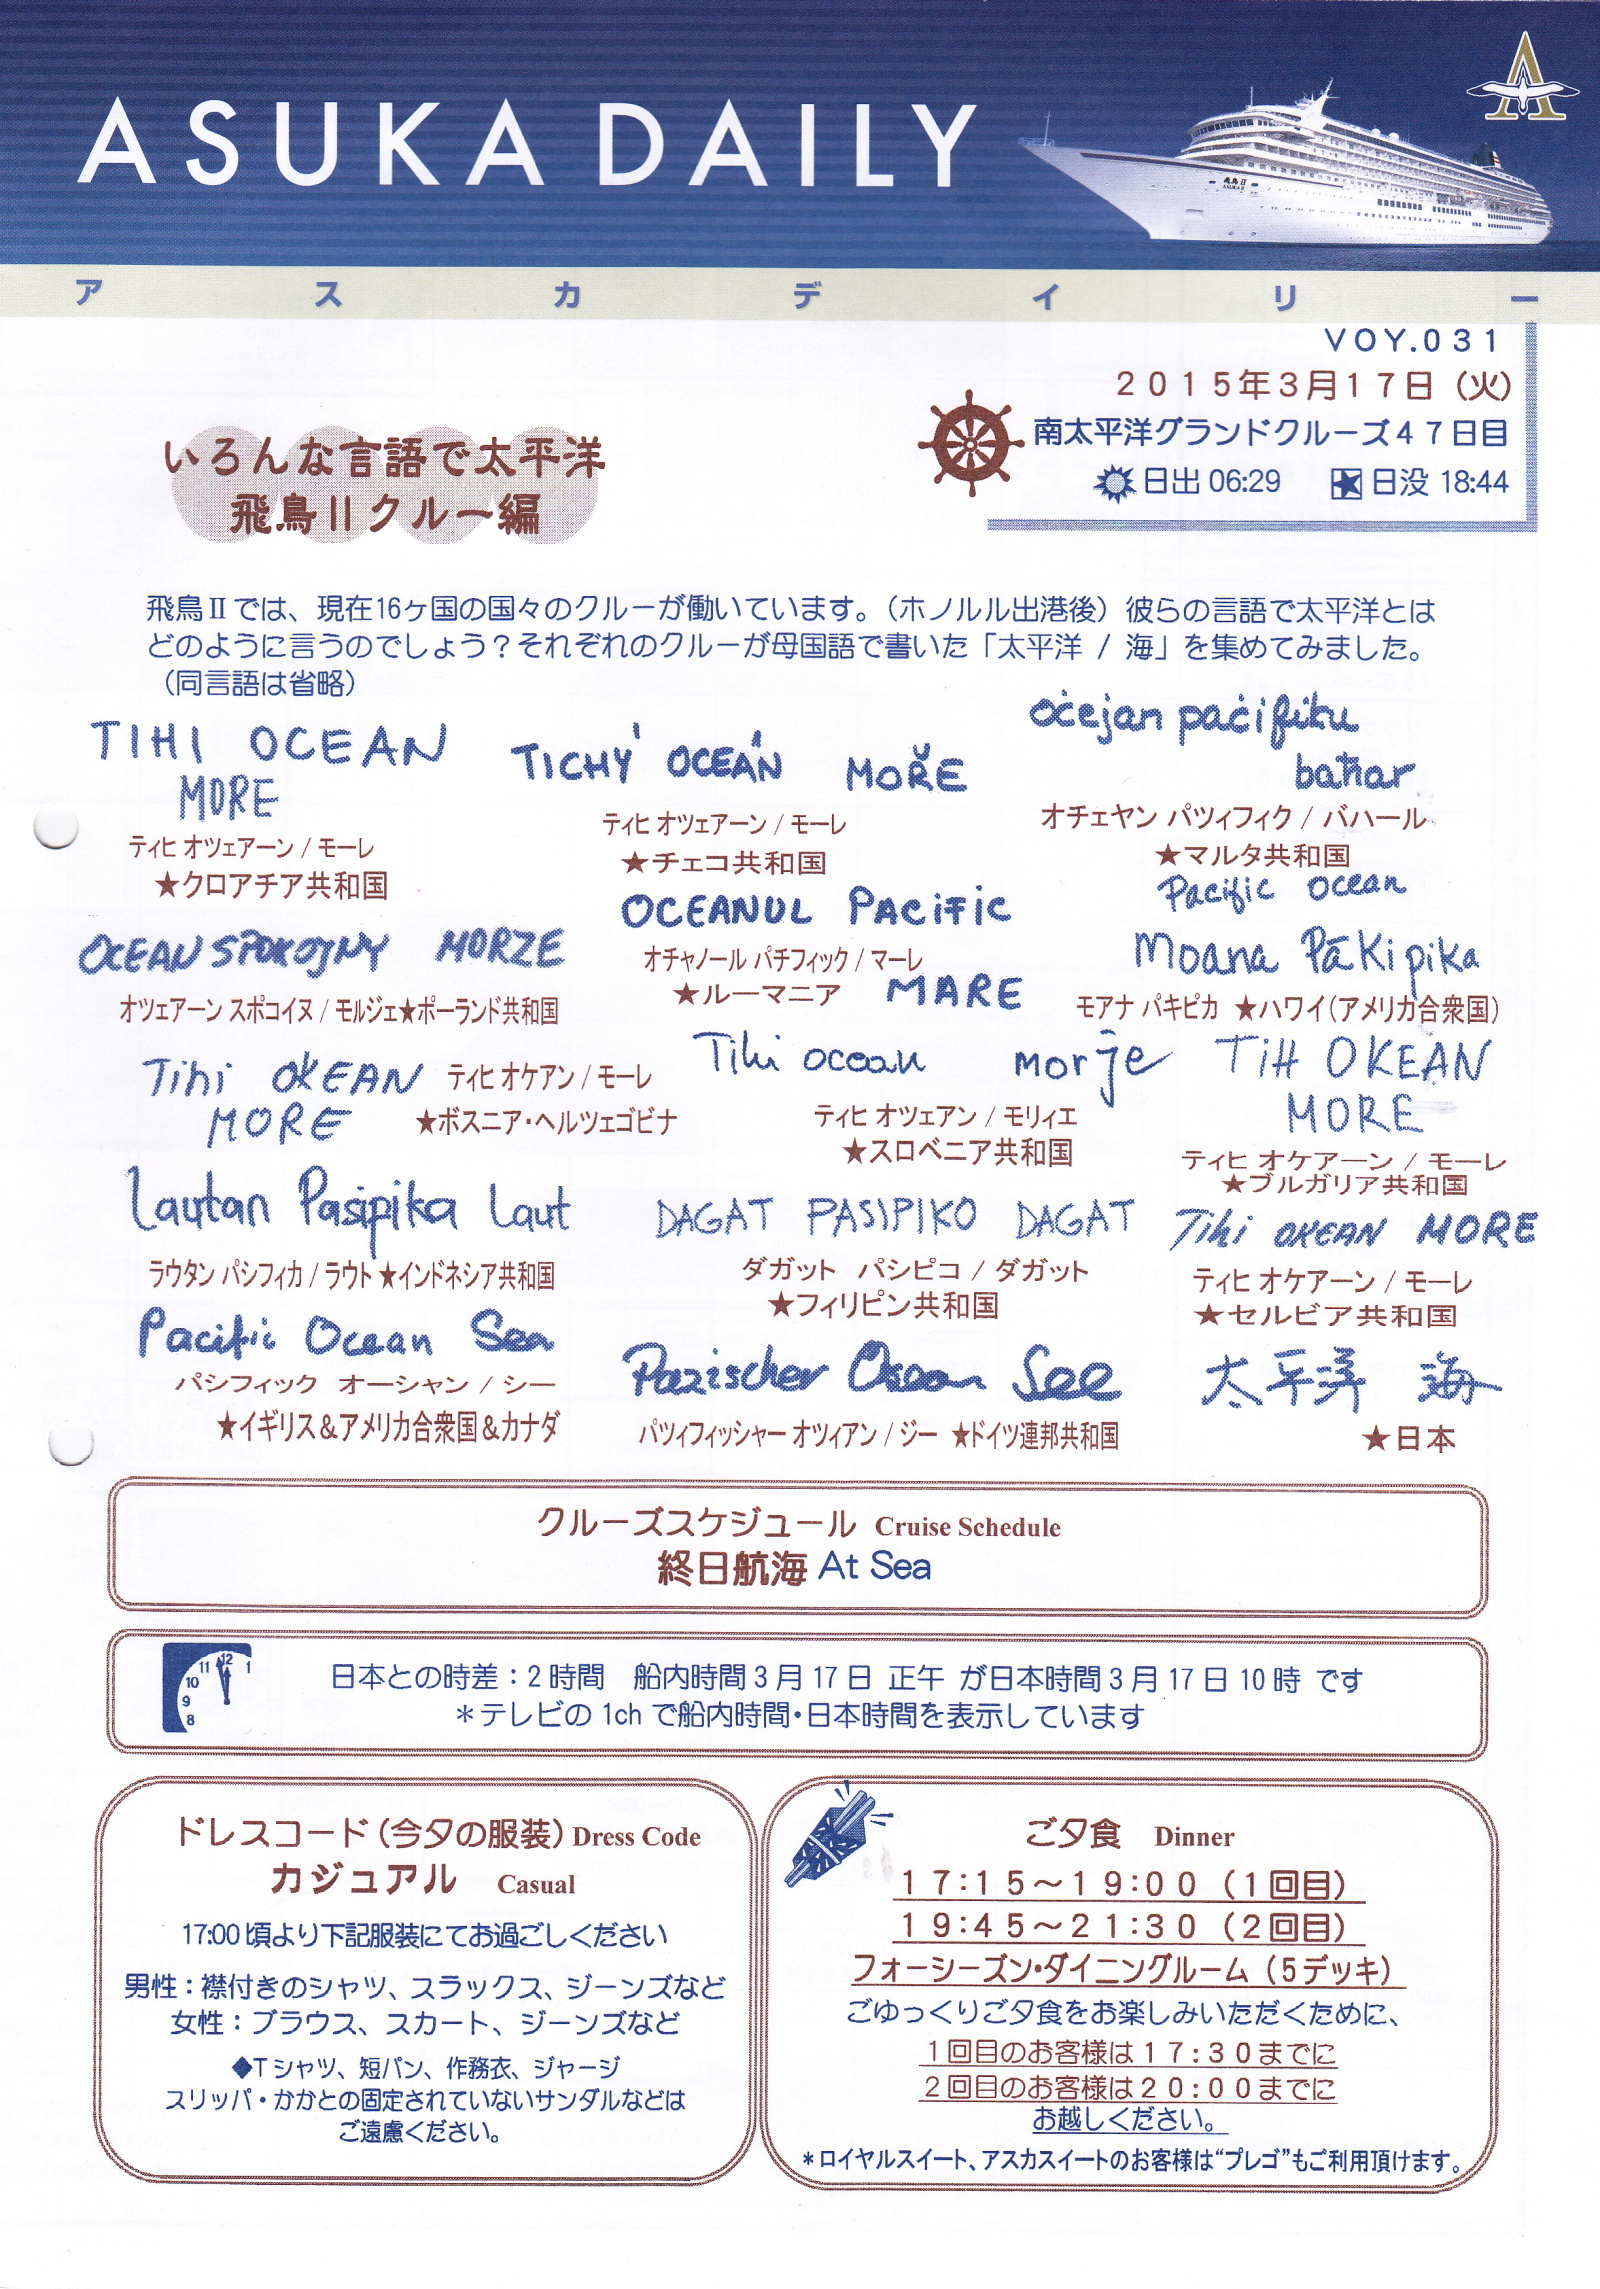 ASUKA DAILY
飛鳥II
ASUKA II
アスカデイリー
VOY.031
2015年3月17日（火）
南太平洋グランドクルーズ47日目
日出 06:29 日没 18:44
いろんな言語で太平洋
飛鳥Ⅱクルー編
飛鳥Ⅱでは、現在16ヶ国の国々のクルーが働いています。（ホノルル出港後）彼らの言語で太平洋とは
どのように言うのでしょう？それぞれのクルーが母国語で書いた「太平洋 / 海」を集めてみました。
（同言語は省略）
TIHI OCEAN
MORE
ティヒ オツェアーン / モーレ
★クロアチア共和国
TICHÝ OCEÁN MOŘE
ティヒ オツェアーン / モーレ
★チェコ共和国
oċejan paċifiku
baħar
オチェヤン パツィフィク / バハール
★マルタ共和国
OCEAN SPOKOJNY MORZE
オツェアーン スポコイヌ / モルジェ★ポーランド共和国
OCEANUL PACIFIC
オチャノール パチフィック / マーレ
★ルーマニア MARE
Pacific Ocean
Moana Pākipika
モアナ パキピカ ★ハワイ（アメリカ合衆国）
Tihi OKEAN
MORE
ティヒ オケアン / モーレ
★ボスニア・ヘルツェゴビナ
Tihi ocean morje
ティヒ オツェアン / モリィエ
★スロベニア共和国
TiH OKEAN
MORE
ティヒ オケアーン / モーレ
★ブルガリア共和国
Lautan Pasipika Laut
ラウタン パシフィカ / ラウト ★インドネシア共和国
DAGAT PASIPIKO DAGAT
ダガット パシピコ / ダガット
★フィリピン共和国
Tihi OKEAN MORE
ティヒ オケアーン / モーレ
★セルビア共和国
Pacific Ocean Sea
パシフィック オーシャン / シー
★イギリス＆アメリカ合衆国＆カナダ
Pazischer Ozean See
パツィフィッシャー オツィアン / ジー ★ドイツ連邦共和国
太平洋 海
★日本
クルーズスケジュール Cruise Schedule
終日航海 At Sea
12
11 1
10
9
8
日本との時差：2時間 船内時間3月17日 正午 が日本時間3月17日10時 です
＊テレビの 1ch で船内時間・日本時間を表示しています
ドレスコード（今夕の服装）Dress Code
カジュアル Casual
17:00頃より下記服装にてお過ごしください
男性：襟付きのシャツ、スラックス、ジーンズなど
女性：ブラウス、スカート、ジーンズなど
◆Tシャツ、短パン、作務衣、ジャージ
スリッパ・かかとの固定されていないサンダルなどは
ご遠慮ください。
ご夕食 Dinner
17:15～19:00（1回目）
19:45～21:30（2回目）
フォーシーズン・ダイニングルーム（5デッキ）
ごゆっくりご夕食をお楽しみいただくために、
1回目のお客様は17:30までに
2回目のお客様は20:00までに
お越しください。
＊ロイヤルスイート、アスカスイートのお客様は“プレゴ”もご利用頂けます。